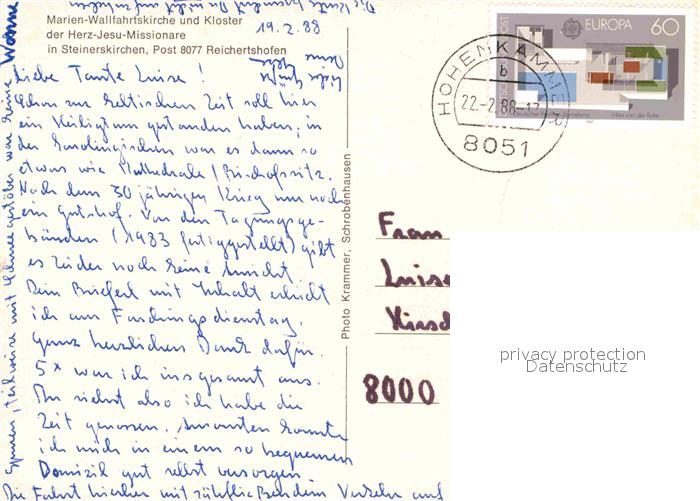 Marien-Wallfahrtskirche und Kloster
der Herz-Jesu-Missionare
in Steinerskirchen, Post 8077 Reichertshofen
19.2.88
Liebe Tante Luise!
Schon zur keltischen Zeit soll hier
ein Heiligtum gestanden haben; in
der war es dann so
etwas wie Kathedrale/Bischofssitz.
Nach dem 30 jährigen Krieg nur noch
ein Gutshof. Von den Tagungsge-
bäuden (1983 fertiggestellt) gibt
es leider noch keine Ansicht
Dein Brieferl mit Inhalt erhielt
ich am Faschingsdienstag.
Ganz herzlichen Dank dafür.
5x war ich insgesamt aus.
Du siehst also ich habe die
Zeit genossen. Ansonsten konnte
ich mich in einem so bequemen
Domizil gut selbst versorgen.
Die Fahrt hierher mit zähfließendem Verkehr auf
Photo Krammer, Schrobenhausen
EUROPA 60
HOHENKAMMER
b
22.-2.88-17
8051
Mies van der Rohe
Frau
Luise
Hirsc
8000
privacy protection
Datenschutz